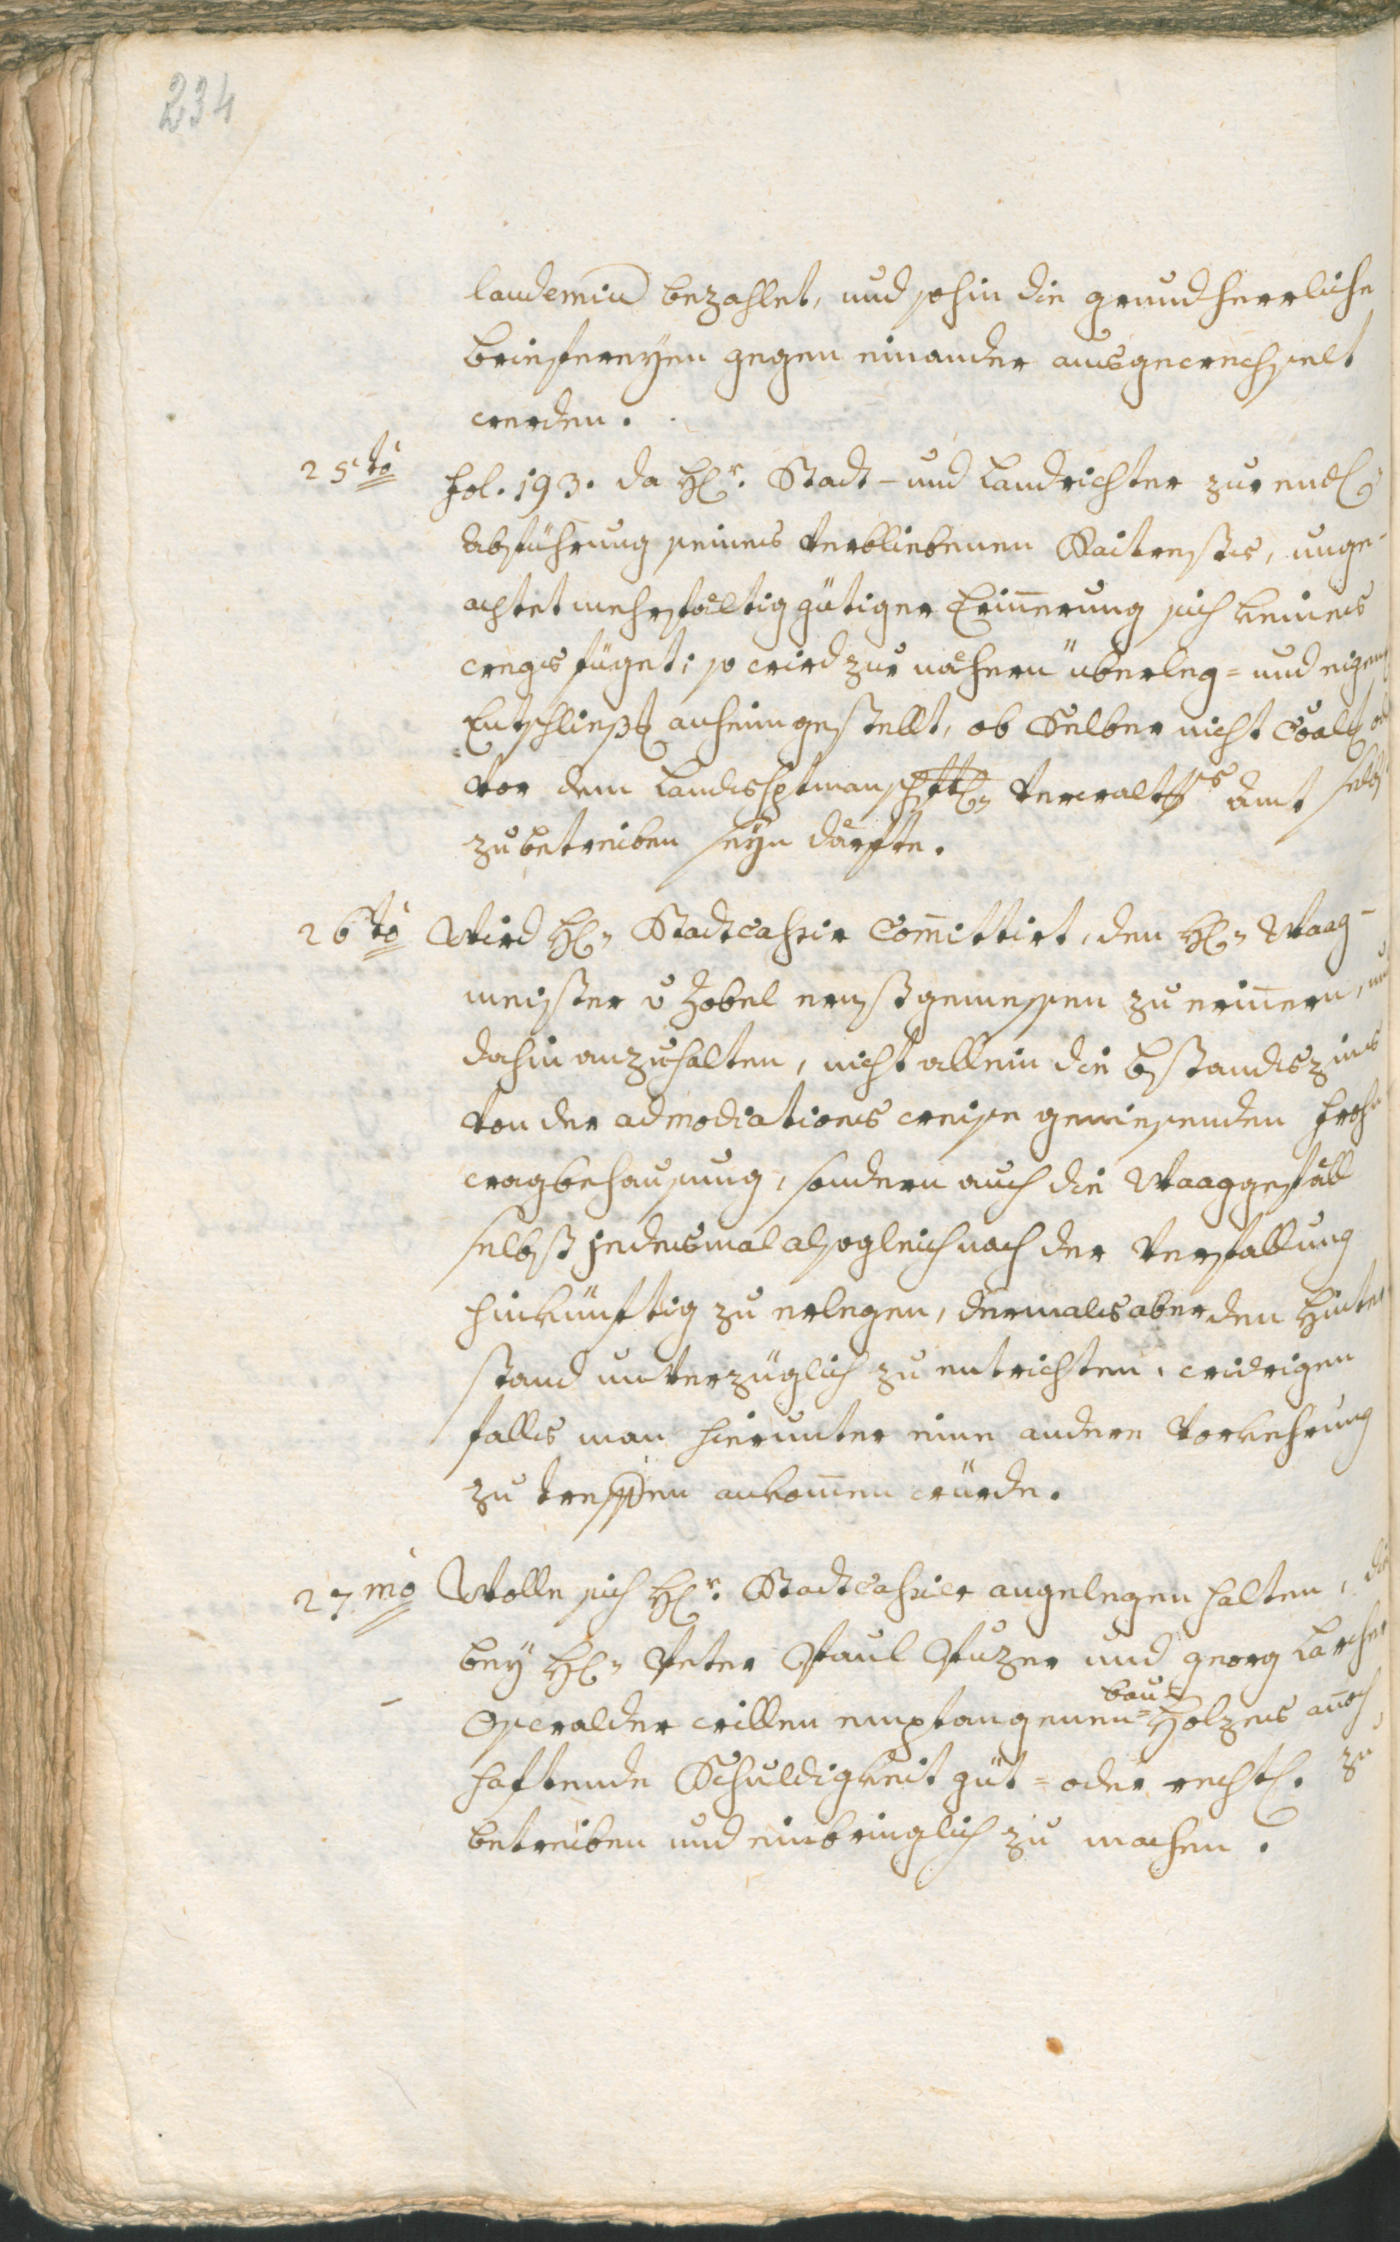 234
laudemia bezahlet, und sohin die grundherrliche
briefereyen gegen einander ausgewechselt
werden.
25.to fol. 193. da H. Stadt- und Landrichter zur endl.
abführung seines verbliebenen Raitrests, unge-
achtet mehrfältig gütiger Erinerung sich keines
wegs füget; so wird zur nähern überleg- und eigenen
Entschließ anheimgestellt, ob Selber nicht
vor dem Landshptmanschftl. Verwalt Amt selbst
zubetreiben seyn därfte.
26to Wird H. Stadtcassir Comittirt, den H. Waag-
meister v Zobel ernstgemessen zu erinern, und
dahin anzuhalten, nicht allein die bstandszins
von der admodiations weise geniesenden Froh
wagbehausung, sondern auch die Waaggefäll
selbst jedesmal alsogleich nach der Verfallung
hinkünftig zu erlegen, dermals aber den Hinter
stand unverzüglich zu entrichten, widrigen
falls man hierunter eine andere Vorkehrung
zu treffen ankomen würde.
27.mo Wolle sich Hr. Stadtcassier angelegen halten, die
bey H. Peter Paul Puzer und georg Larcher
Oswalder willen empfangenen bau-
Holzens anoch
haftende Schuldigkeit güt- oder rechtl. zu
betreiben und einbringlich zu machen.